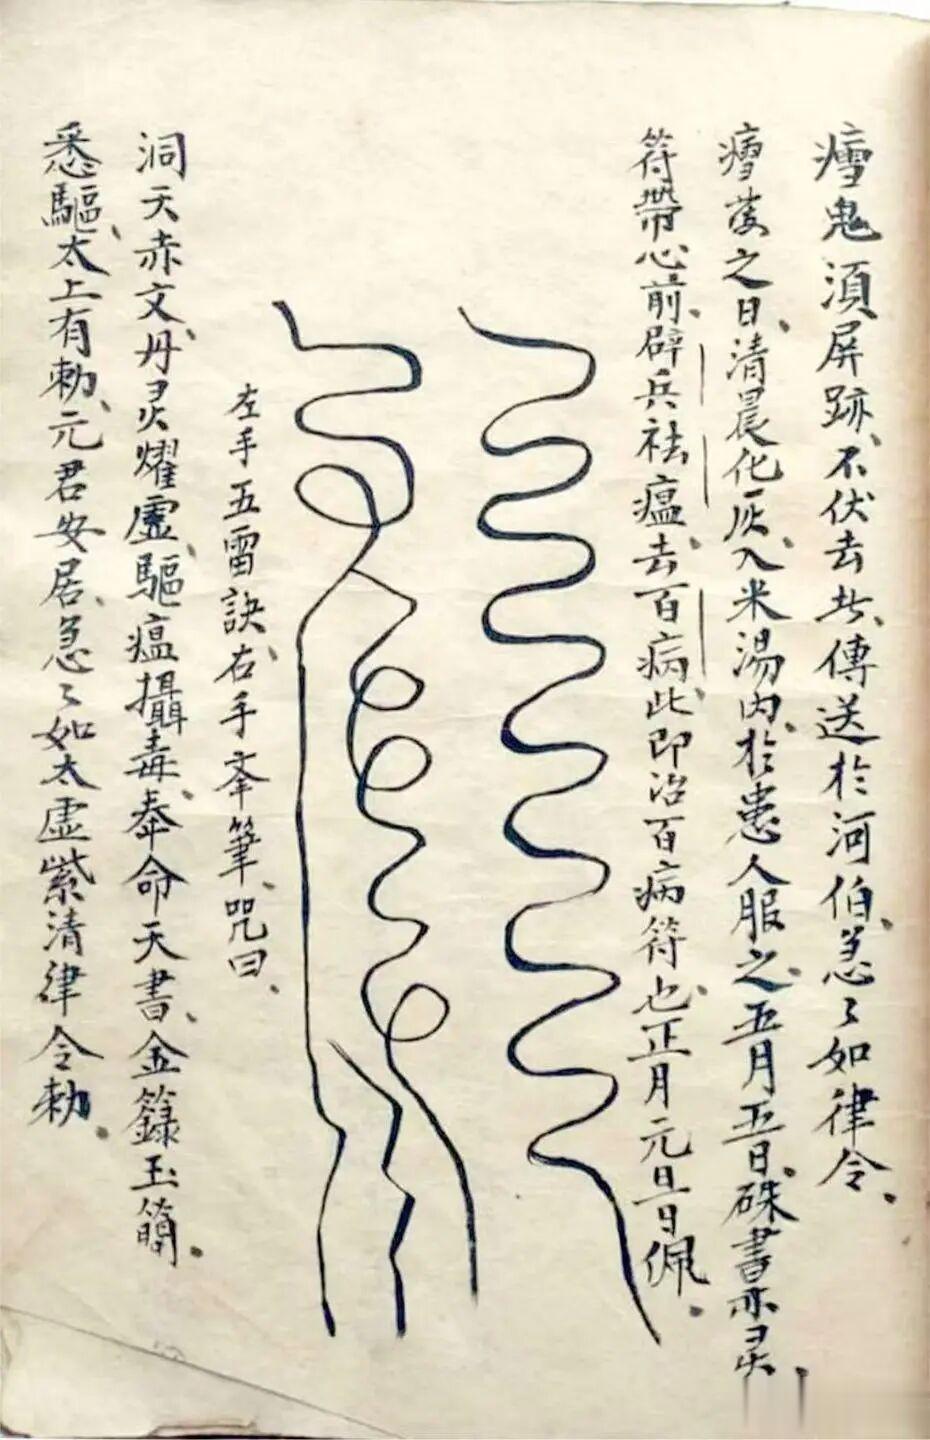 瘧鬼須屏跡、不伏去者、傳送於河伯、急〻如律令、
瘧發之日、清晨化灰、入米湯內、於患人服之、五月五日、硃書亦灵、
符帶心前、辟兵祛瘟、去百病、此即治百病符也、正月元旦日佩、
左手五雷訣、右手举筆、咒曰、
洞天赤文、丹灵耀虛、驅瘟攝毒、奉命天書、金籙玉簡、
悉驅、太上有勅、元君安居、急〻如太虛紫清律令勅、